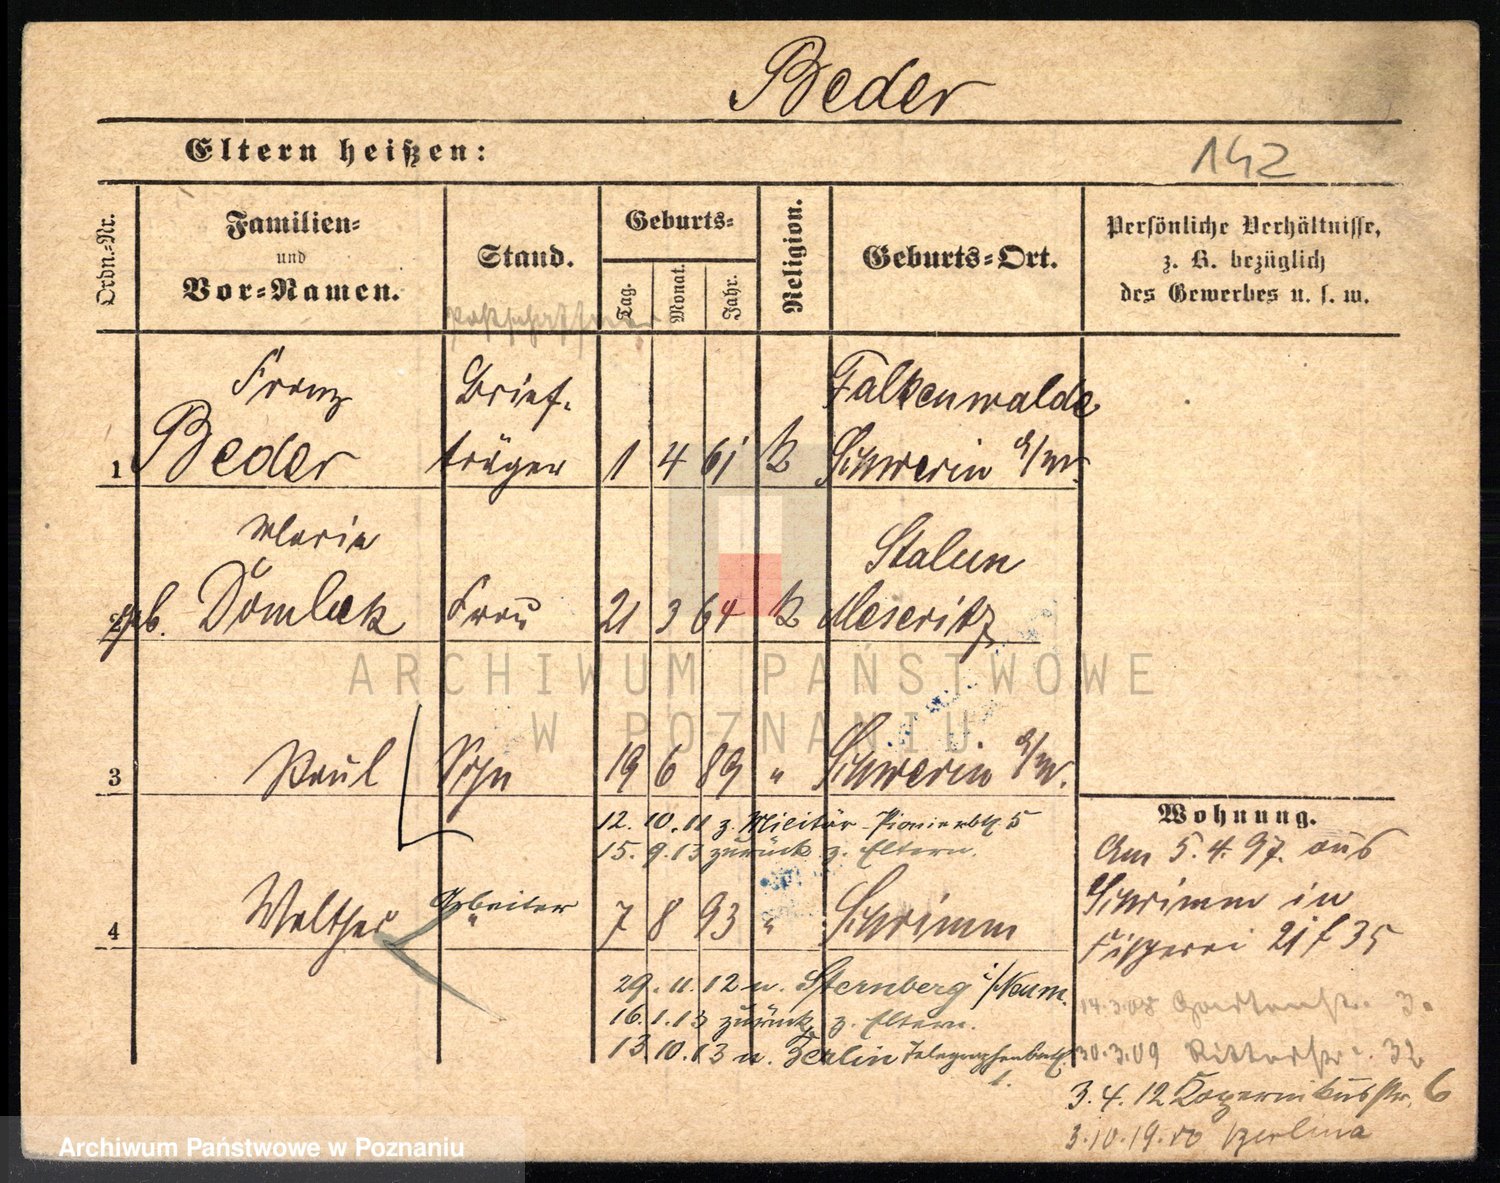 Beder
Eltern heißen:
142
Ordn.-Nr.
Familien-
und
Vor-Namen.
Stand.
Geburts-
Tag.
Monat.
Jahr.
Religion.
Geburts-Ort.
Persönliche Verhältnisse,
z. B. bezüglich
des Gewerbes u. s. w.
Postschaffner
Franz Brief- Falkenwalde
1 Beder träger 1 4 61 K Schwerin a/W.
Maria Stalun
2 geb. Dömbek Frau 21 3 64 K Meseritz
ARCHIWUM PAŃSTWOWE
W POZNANIU
3 Paul Sohn 19 6 89 " Schwerin a/W.
12. 10. 11 z. Militär Pionierbtl. 5
15. 9. 13 zurück z. Eltern.
Arbeiter
4 Walther " 7 8 93 " Schrimm
29. 11. 12 n. Sternberg i/Neum.
16. 1. 13 zurück z. Eltern.
13. 10. 13 n. Berlin Telegraphenbatl.
1.
Wohnung.
Am 5. 4. 97. aus
Schrimm in
Fischerei 21 f 35
14.3.08 Gartenstr. 3.
30.3.09 Ritterstr. 32
3. 4. 12 Kopernikusstr. 6
3.10.19. Berlina
Archiwum Państwowe w Poznaniu